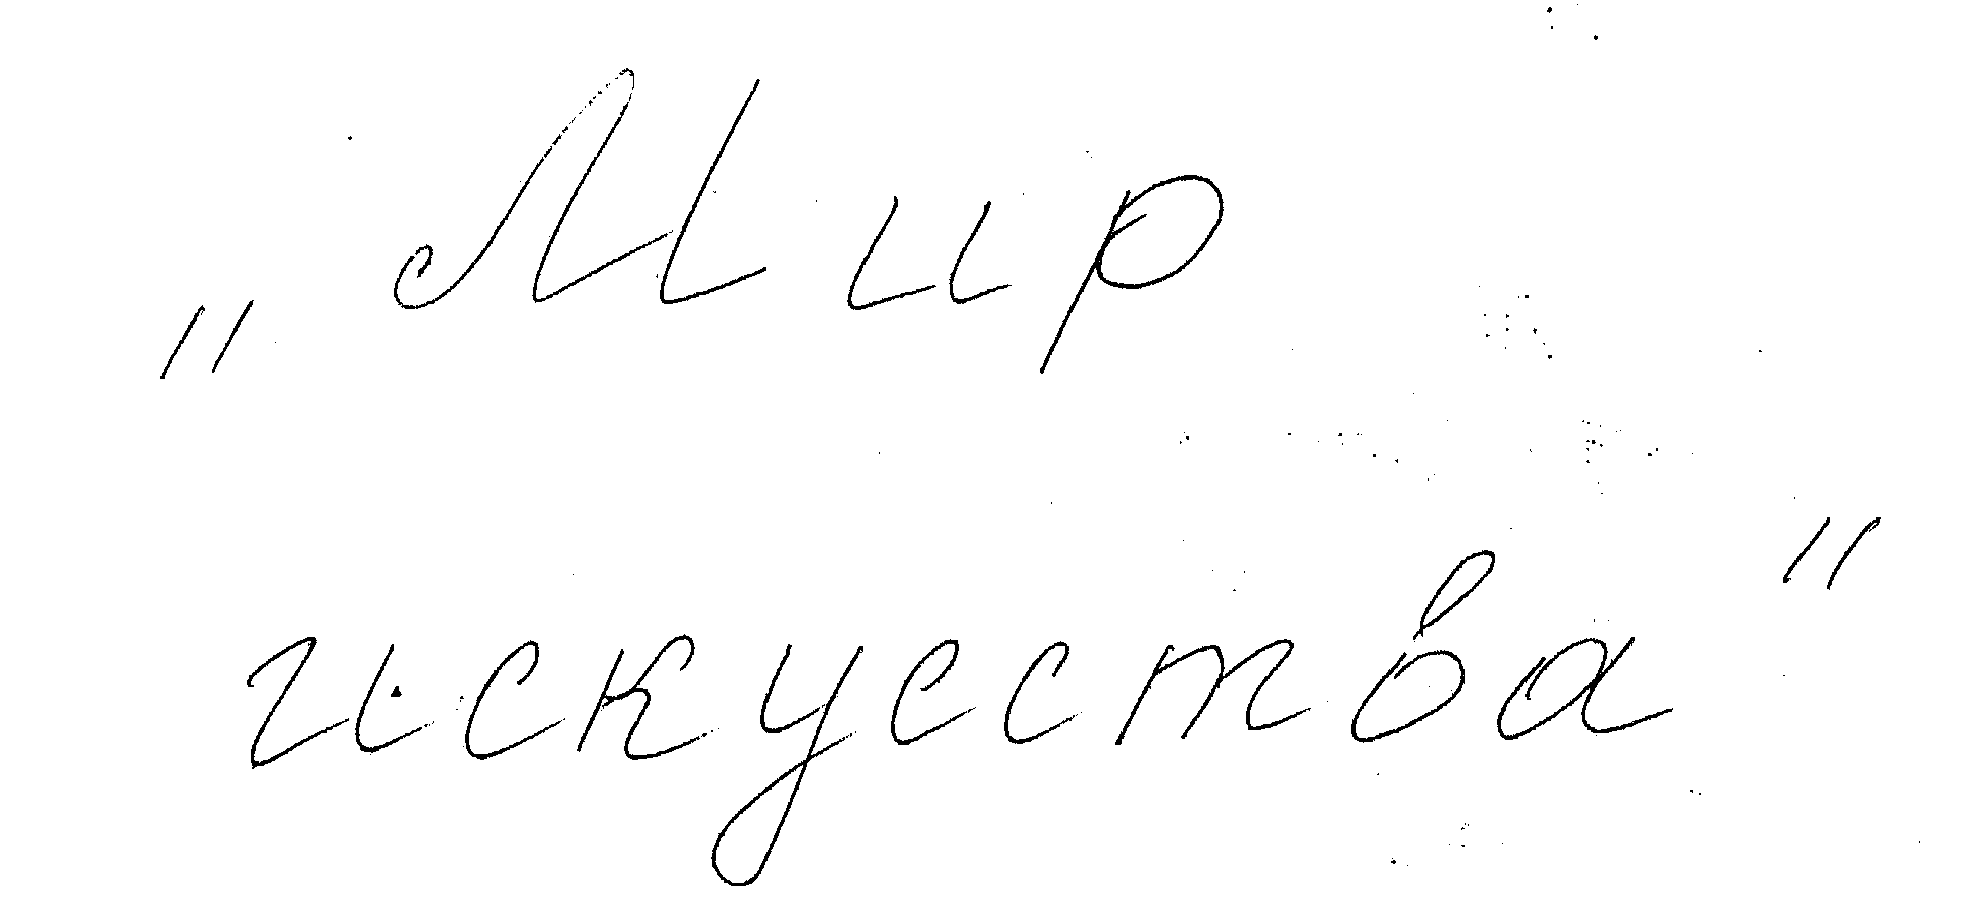 „Мир
искусства"